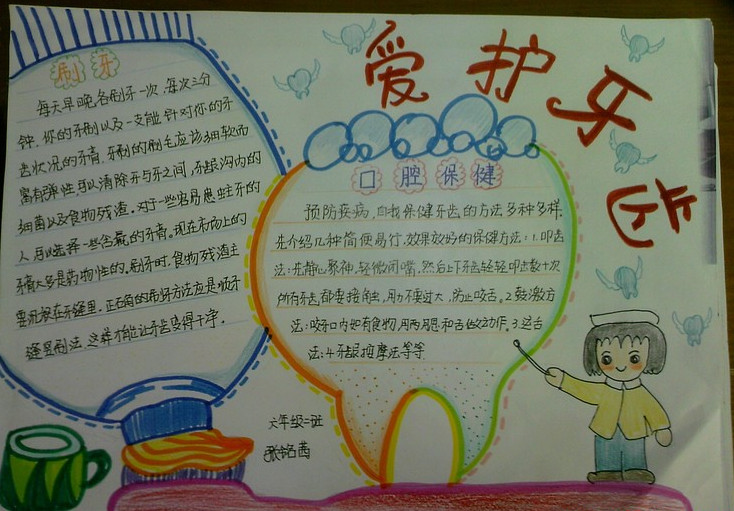 爱护牙齿
刷牙
每天早晚各刷牙一次,每次三分
钟,你的牙刷以及一支能针对你的牙
齿状况的牙膏,牙刷的刷毛应该细软而
富有弹性,可以清除牙与牙之间,牙龈沟内的
细菌以及食物残渣。对于一些容易患蛀牙的
人可以选择一些含氟的牙膏。现在市场上的
牙膏大多是药物性的。刷牙时,食物残渣主
要积聚在牙缝里,正确的刷牙方法应是顺牙
缝竖刷法,这样才能让牙齿变得干净。
口腔保健
预防疾病,自我保健牙齿的方法多种多样
先介绍几种简便易行,效果放好的保健方法:1.叩齿
法:先静心聚神,轻微闭嘴,然后上下牙齿轻轻叩击数十次
所有牙齿都要接触,用力不要过大,防止咬舌。2.鼓漱方
法:咬牙口内如有食物,用两腮和舌做动作。3.运舌
法:4.牙龈按摩法等等
六年级二班
张铭茜